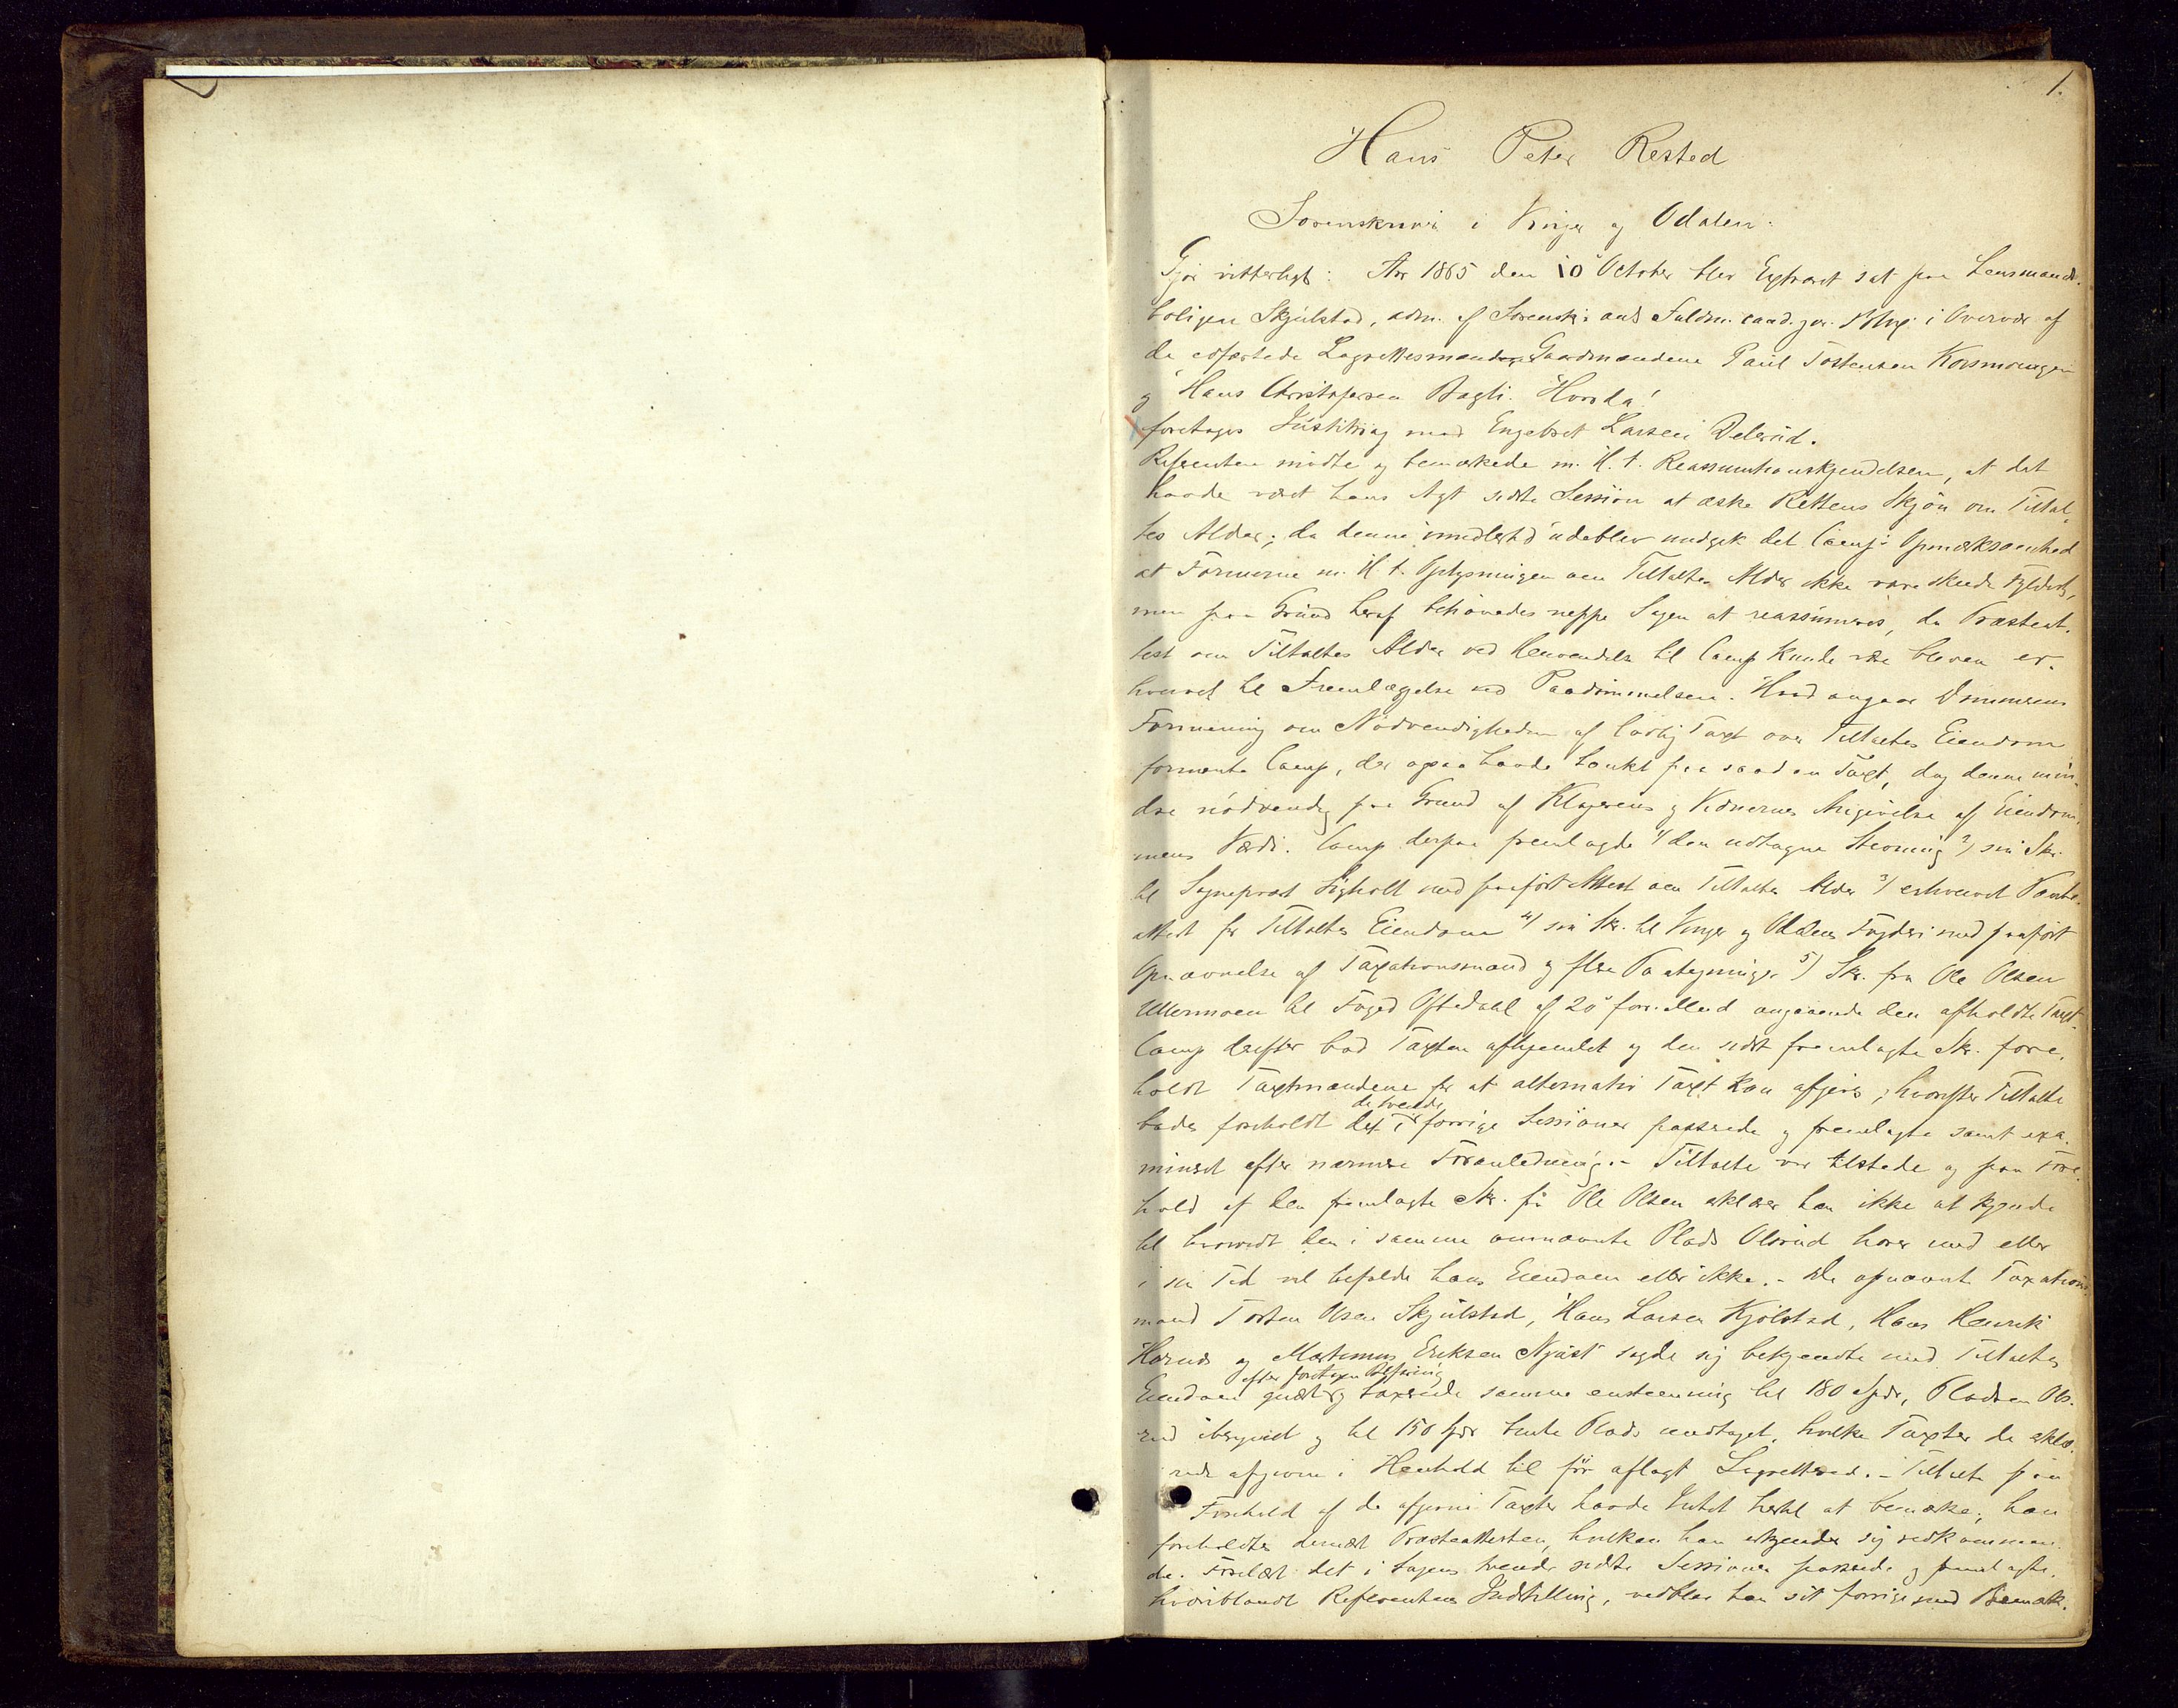 1.
Hans Peter Rested
Sorenskriver i Vinger og Odalen.
Gjør vitterligt: Aar 1865 den 10 October blev Extraret sat paa Lensmands-
boligen Skjulstad, adm. af Sorenskr.s aut. Fuldm. cand. jur. i Overvær af
de edfæstede Lagrettesmænd Gaardmændene Paul Tostensen Korsmoungen
og Hans Christophersen Bagli. Hvorda!
foretages Justitssag mod Engebret Larsen Delerud.
Referenten mødte og bemærkede m. H. t. Reassumtionskjendelsen, at det
havde været hans Agt sidste Session at æske Rettens Skjøn om Tiltal-
tes Alder; da denne imidlertid udeblev undgik det Comp.s Opmærksomhed
at Formerne m. H. t. Oplysningen om Tiltaltes Alder ikke vare skeede Fyldest,
men paa Grund heraf behøvedes neppe Sagen at reassumeres, da Præsteat-
test om Tiltaltes Alder ved Henvendelse til Comp. kunde være bleven er-
hvervet til Fremlæggelse ved Paadømmelsen. Hvad angaar Dommerens
Formening om Nødvendigheden af lovlig Taxt over Tiltaltes Eiendom
formente Comp., der ogsaa havde tænkt paa saadan Taxt, dog denne min-
dre nødvendig paa Grund af Klagerens og Vidnernes Angivelse af Eiendom-
mens Værdi. Comp. derpaa fremlagde 1) den udtagne Stevning 2) sin Skr.
til Sogneprest med paaført Attest om Tiltaltes Alder 3) erhvervet Pante-
attest for Tiltaltes Eiendom 4) sin Skr. til Vinger og Odalens Fogderi med paaført
Opnævnelse af Taxationsmænd og flere Paategninger 5) Skr. fra Ole Olsen
Uttermoen til Foged Oftedahl af 20de forr. Md. angaaende den afholdte Taxt.
Comp. derefter bad Taxten afhjemlet og den sidst fremlagte Skr. fore-
holdt Taxtmændene for at alternativ Taxt kan afgives, hvorefter Tiltalte
de tvende
bades foreholdt det i forrige Sessioner passerede og fremlagte samt exa-
mineret efter nærmere Foranledning. – Tiltalte var tilstede og paa Fore-
hold af den fremlagte Skr. fra Ole Olsen erklærer han ikke at kjende
til hvorvidt den i samme omnævnte Plads Olsrud hører med eller
i sin Tid vil befølde hans Eiendom eller ikke. – De opnævnte Taxations-
mænd Torsten Olsen Skjulstad, Hans Larsen Kjølstad, Hans Henrik
Hornes og Martinus Eriksen Njust sagde sig bekjendte med Tiltaltes
efter foretagen Besigtning
Eiendom taxerede samme enstemmig til 180 Spdr, Pladsen Ols-
rud iberegnet og til 150 Spdr dente Plads undtaget, hvilke Taxter de erklæ-
rede afgivne i Henhold til før aflagt Lagrettesed. – Tiltalte paa
Forehold af de afgivne Taxter havde Intet hertil at bemærke; han
foreholdtes dernæst Præsteattesten, hvilken han erkjendte sig vedkommen-
de. Forelæst det i Sagens tvende sidste Sessioner passerede og fremlagte,
hvoriblandt Referentens Indstilling, vedblev han sit forrige med Bemærk-